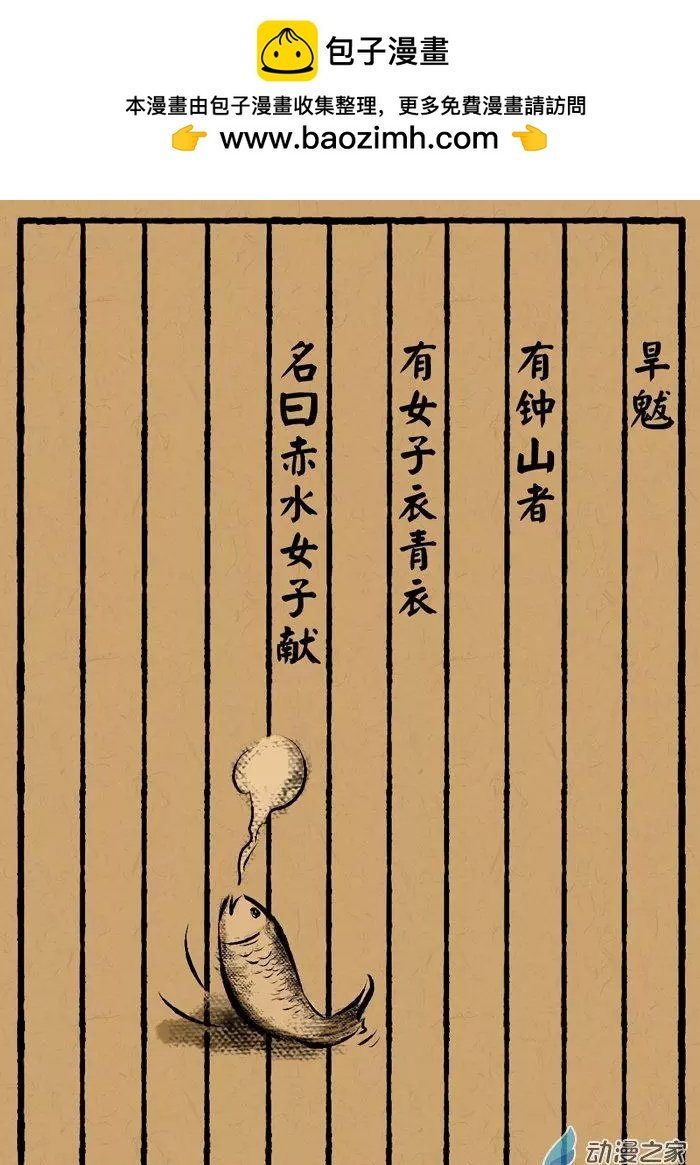 包子漫畫
本漫畫由包子漫畫收集整理，更多免費漫畫請訪問
👉 www.baozimh.com 👈
旱魃
有钟山者
有女子衣青衣
名曰赤水女子献
动漫之家